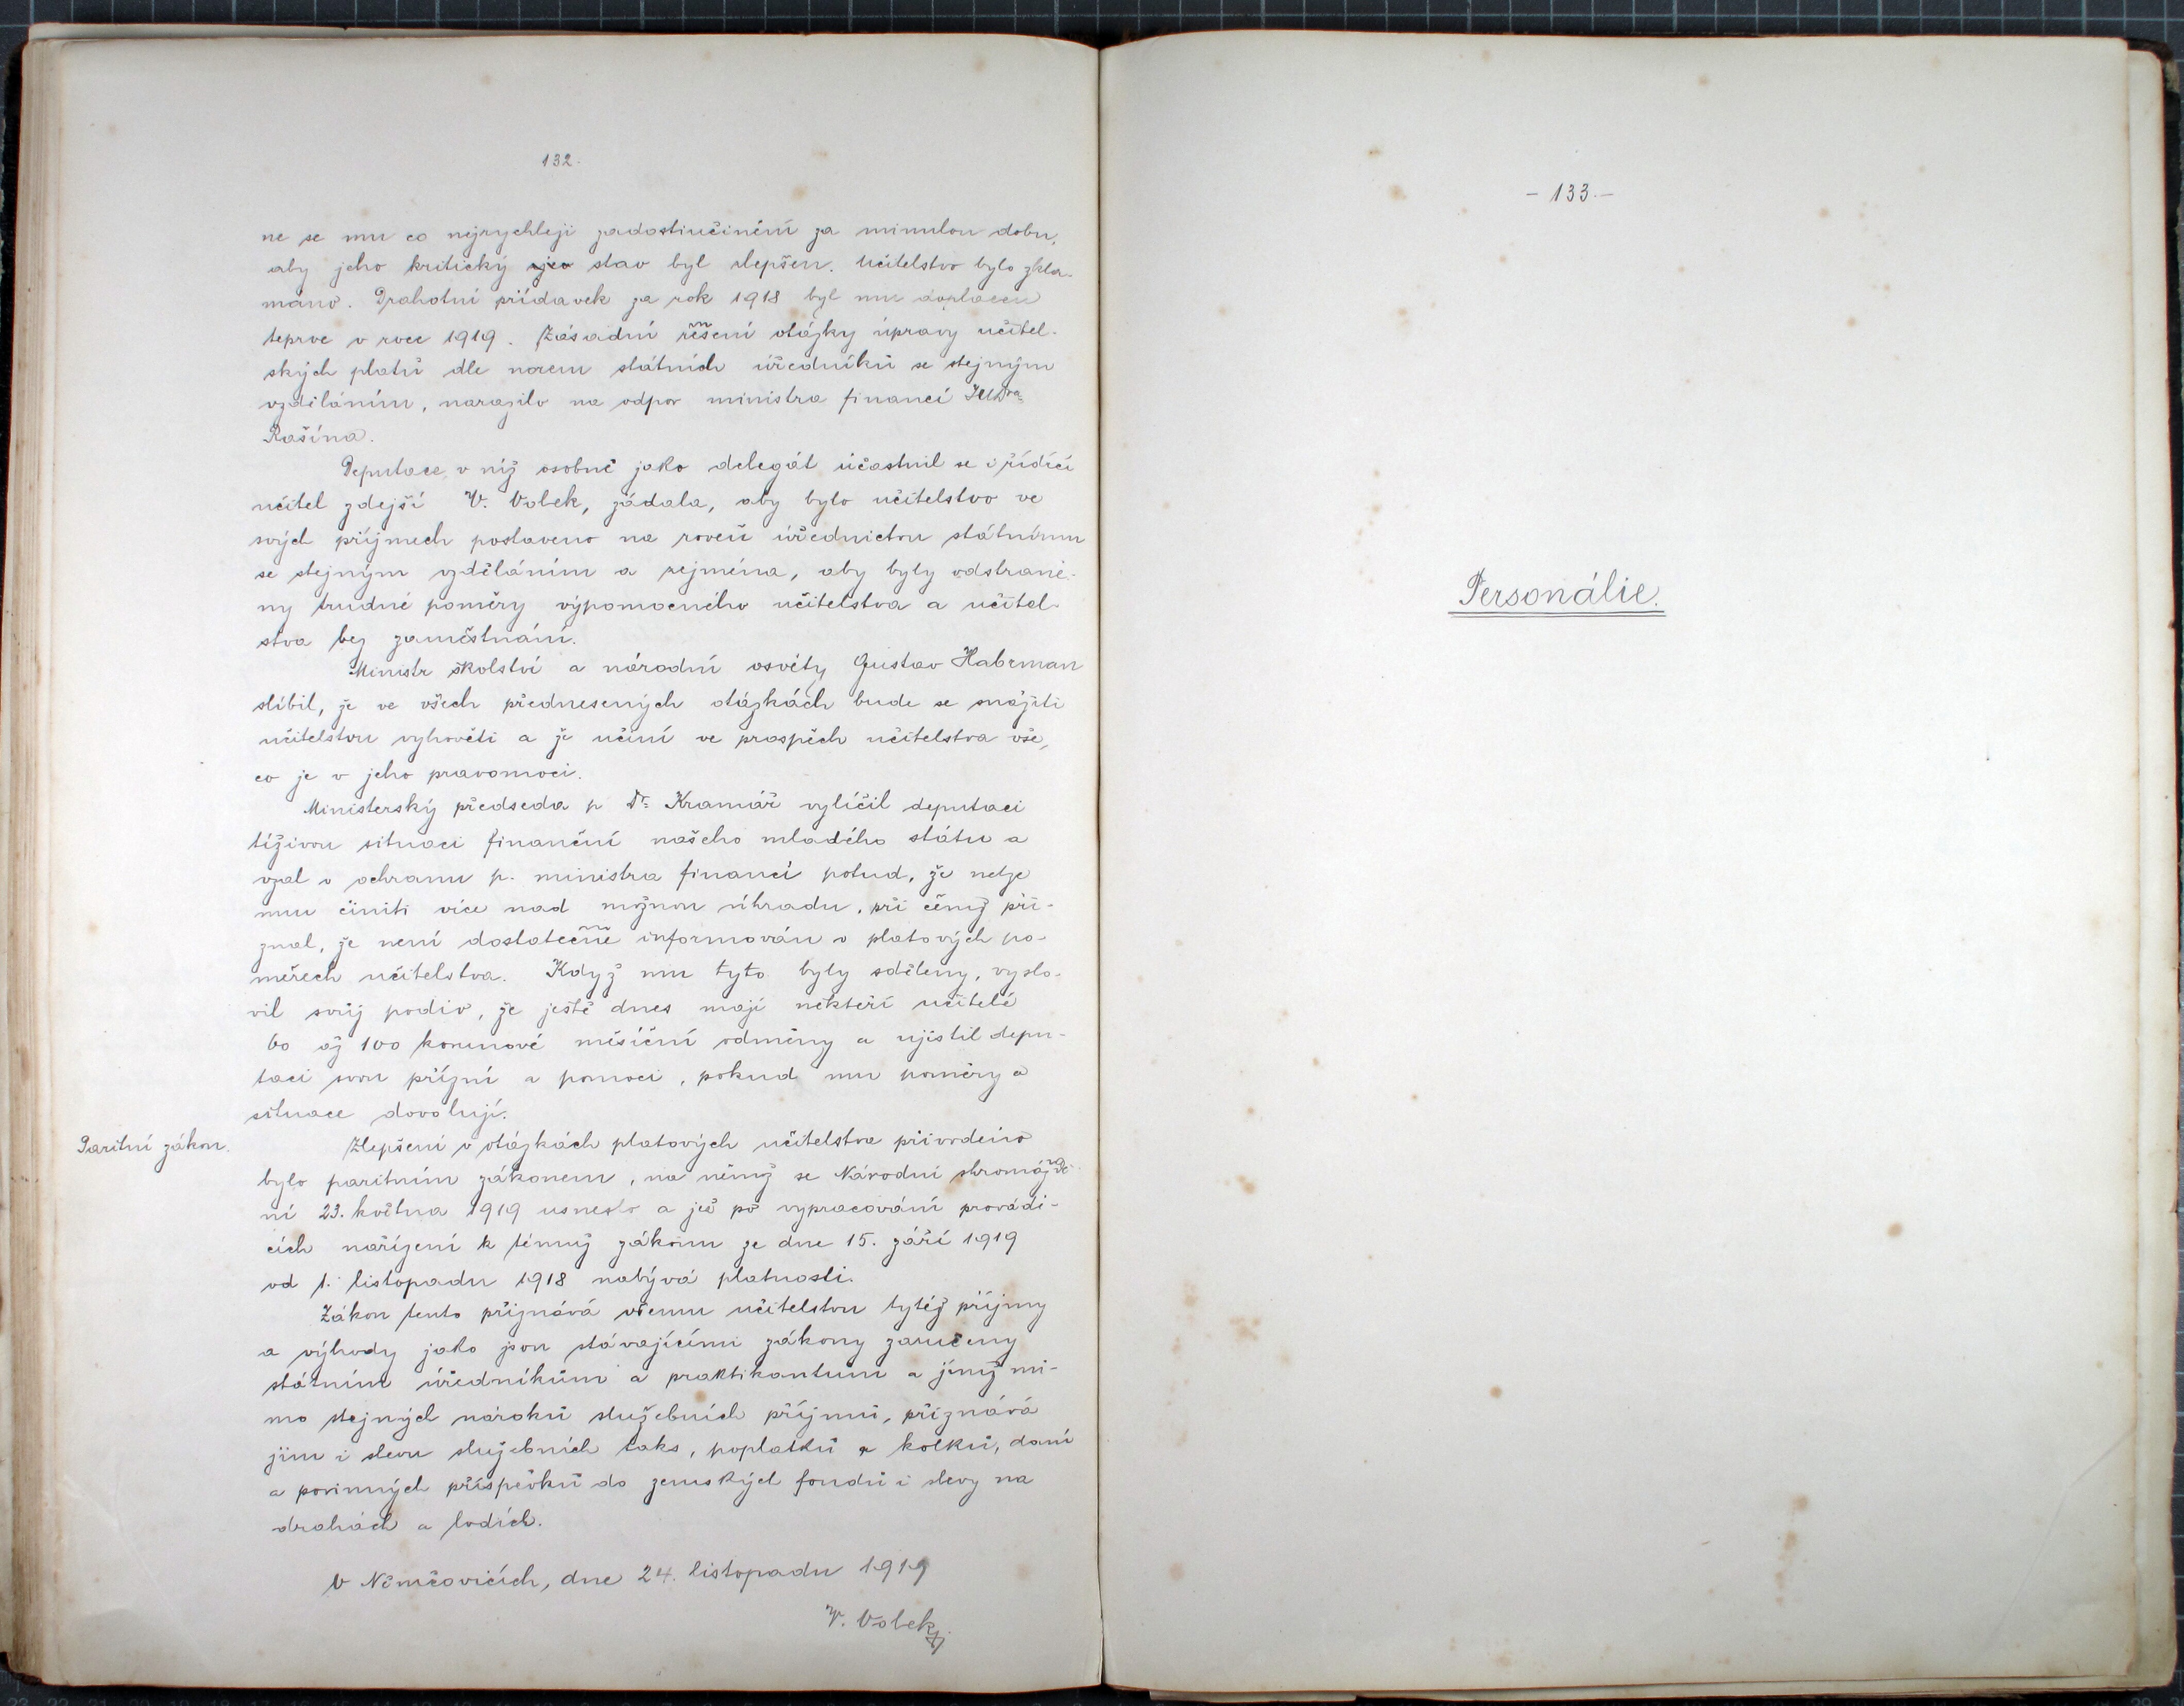 132.
ne se mu co nejrychleji zadostiučinění za minulou dobu,
aby jeho kritický stav byl zlepšen. Učitelstvo bylo zkla-
máno. Drahotní přídavek za rok 1918 byl mu doplacen
teprve v roce 1919. Zásadní řešení otázky úpravy učitel-
ských platů dle norem státních úředníků se stejným
vzděláním, narazilo na odpor ministra financí JUDra
Rašína.
Deputace, v níž osobně jako delegát účastnil se i řídící
učitel zdejší V. Volek, žádala, aby bylo učitelstvo ve
svých příjmech postaveno na roveň úřednictvu státnímu
se stejným vzděláním a zejména, aby byly odstraně-
ny trudné poměry výpomocného učitelstva a učitel-
stva bez zaměstnání.
Ministr školství a národní osvěty Gustav Habrman
slíbil, že ve všech přednesených otázkách bude se snažiti
učitelstvu vyhověti a že učiní ve prospěch učitelstva vše,
co je v jeho pravomoci.
Ministerský předseda p Dr. Kramář vylíčil deputaci
tíživou situaci finanční našeho mladého státu a
vzal v ochranu p. ministra financí potud, že nelze
mu činiti více nad možnou úhradu, při čemž při-
znal, že není dostatečně informován o platových po-
měrech učitelstva. Když mu tyto byly sděleny, vyslo-
vil svůj podiv, že ještě dnes mají někteří učitelé
60 až 100 korunové měsíční odměny a ujistil depu-
taci svou přízní a pomocí, pokud mu poměry a
situace dovolují.
Paritní zákon.
Zlepšení v otázkách platových učitelstva přivoděno
bylo paritním zákonem, na němž se Národní shromáždě-
ní 23. května 1919 usneslo a jež po vypracování provádě-
cích nařízení k témuž zákonu ze dne 15. září 1919
od 1. listopadu 1918 nabývá platnosti.
Zákon tento přiznává všemu učitelstvu tytéž příjmy
a výhody jako jsou stávajícími zákony zaručeny
státním úředníkům a praktikantům a jímž mi-
mo stejných nároků služebních příjmů, přiznává
jim i slevu služebních taks, poplatků a kolků, daní
a povinných příspěvků do zemských fondů i slevy na
drahách a lodích.
V Němčovicích, dne 24. listopadu 1919
V. Volek
- 133. -
Personálie.